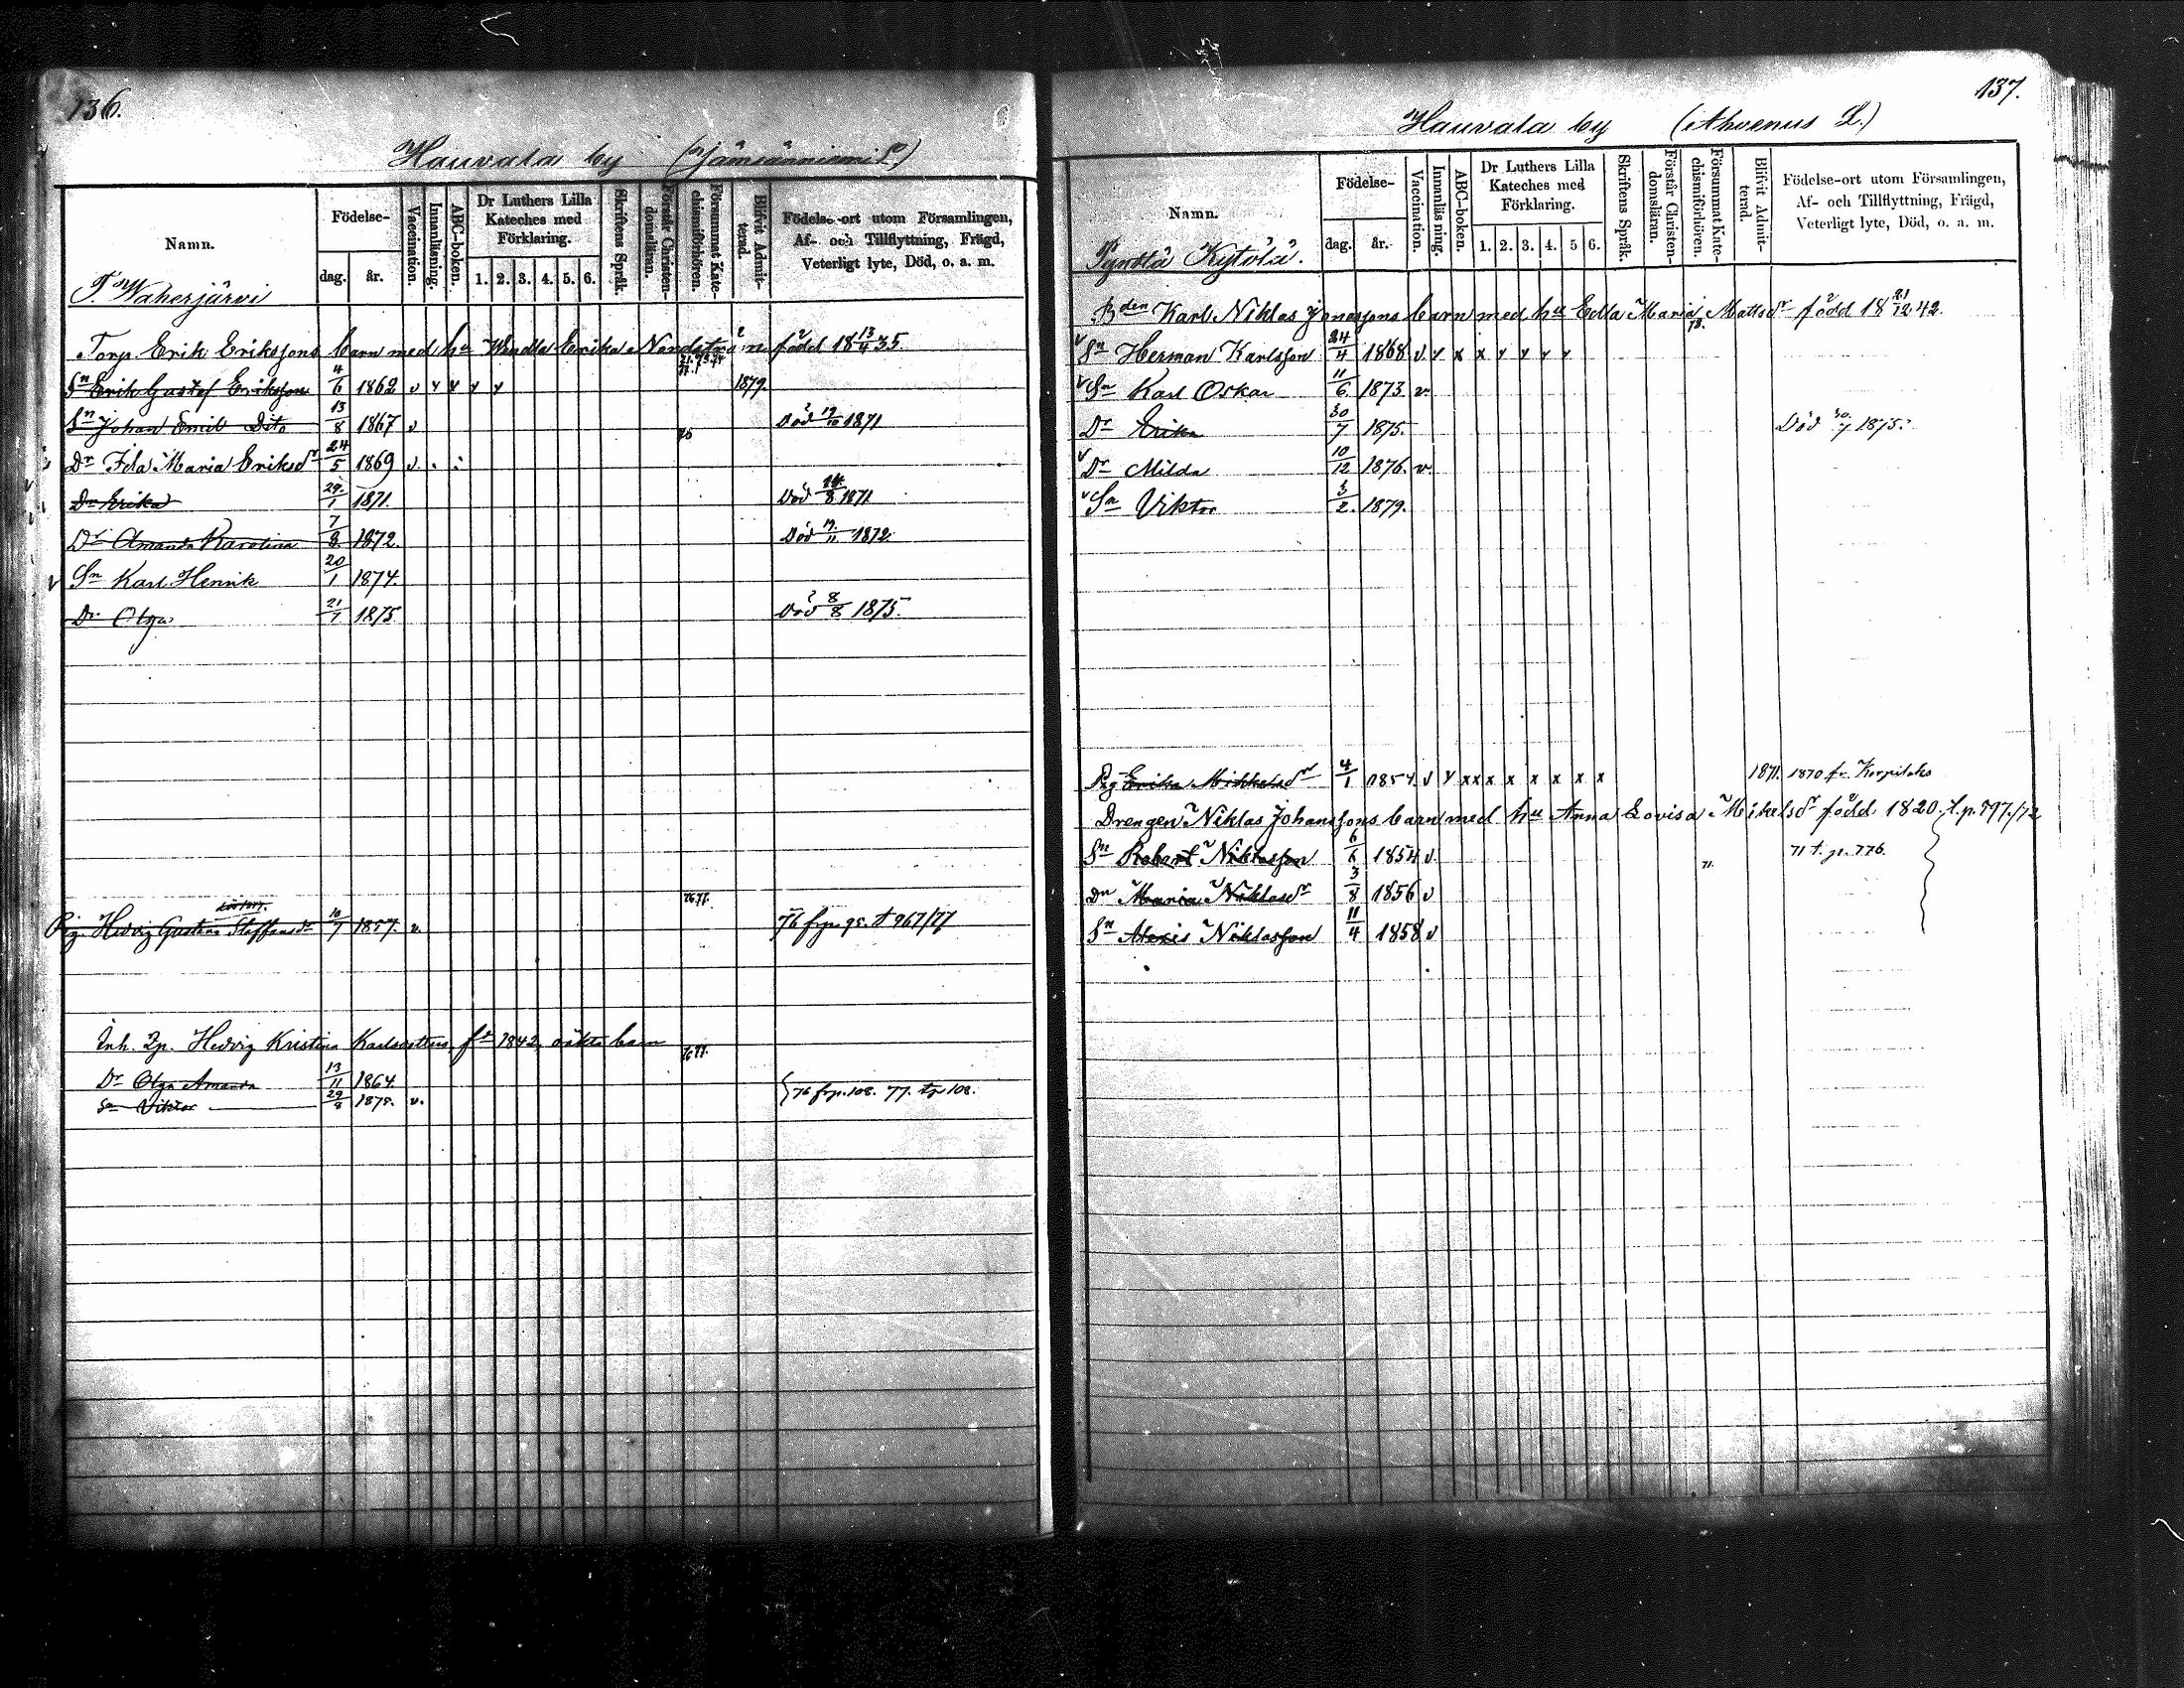 136.
Hauvala by (Jämsänniemi S.)
Namn.
Födelse-
dag. år.
Vaccination.
Innanläsning.
ABC-boken.
Dr Luthers Lilla Kateches med Förklaring.
1. 2. 3. 4. 5. 6.
Skriftens Språk.
Förstår Christendomsläran.
Försummat Katechismiförhören.
Blifvit Admitterad.
Födelse-ort utom Församlingen, Af- och Tillflyttning, Frägd, Veterligt lyte, Död, o. a. m.
T. Waherjärvi
Torp. Erik Erikssons barn med hu Wendla Erika Nordström född 18 13/4 35.
Sn Erik Gustaf Eriksson 4/6 1862 v v v v v 1879.
Sn Johan Emil Dito 13/8 1867 v Död 19/10 1871
Dr Ida Maria Eriksdr 24/5 1869 v. 76
Dr Erika 29./1 1871. Död 14/8 1871
Dr Amanda Karolina 7/8 1872. Död 19/11 1872
Sn Karl Henrik 20/1 1874.
Dr Olga 21/7 1875 Död 8/8 1875.
Pig. Hedvig Gustava Staffansdr 10/7 1857. v. 76.77. 76 frp. 95. t 967/77
Inh. Qp. Hedvig Kristina Karlsdotters, fd 1842, oäkta barn 76 77.
Dr Olga Amanda 13/11 1864
Sn Viktor 29/8 1875. v. 76 frp. 108. 77. tp 108.
137.
Hauvala by (Ahvenus L.)
Namn.
Födelse-
dag. år.
Vaccination.
Innanläsning.
ABC-boken.
Dr Luthers Lilla Kateches med Förklaring.
1. 2. 3. 4. 5 6.
Skriftens Språk.
Förstår Christendomsläran.
Försummat Katechismiförhören.
Blifvit Admitterad.
Födelse-ort utom Församlingen, Af- och Tillflyttning, Frägd, Veterligt lyte, Död, o. a. m.
Kytölä.
Bden Karl Niklas Jonassons barn med hu Edla Maria Mattsdr född 18 21/12 42.
v Sn Herman Karlsson 24/4 1868 v v x x v v v v
v Sn Karl Oskar 11/6. 1873. v.
Dr Erika 30/7 1875. Död 30/7 1875.
v Dr Milda 10/12 1876. v.
v Sn Viktor 3/2. 1879.
Pig Erika Mikkelsdr 4/1 1854. v v x x x x x x x x 1871. 1870 fr. Korpilaks
Drengen Niklas Johanssons barn med hu Anna Lovisa Mikelsdr född 1820. t. p. 797./72
Sn Robert Niklasson 6/6 1854 v. 71. 71 t. p. 776.
Dr Maria Niklasdr 3/8 1856 v
Sn Alexis Niklasson 11/4 1858 v